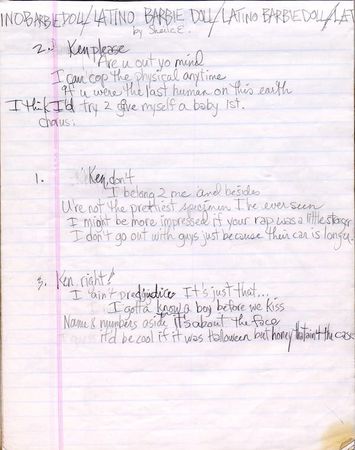 INO BARBIE DOLL/LATINO BARBIE DOLL/LATINO BARBIE DOLL/LAT
by Sheila E.
2. Ken please
Are u out yo mind
I can cop the physical anytime
If u were the last human on this earth
I think I'd try 2 give myself a baby 1st.
chorus:
1. Ken, don't
I belong 2 me and besides
U're not the prettiest specimen I've ever seen
I might be more impressed if your rap was a little stronger
I don't go out with guys just because their car is longer
3. Ken, right?
I ain't predjudice It's just that...
I gotta know a boy before we kiss
Name & numbers aside it's about the face
it'd be cool if it was Haloween but honey that aint the case